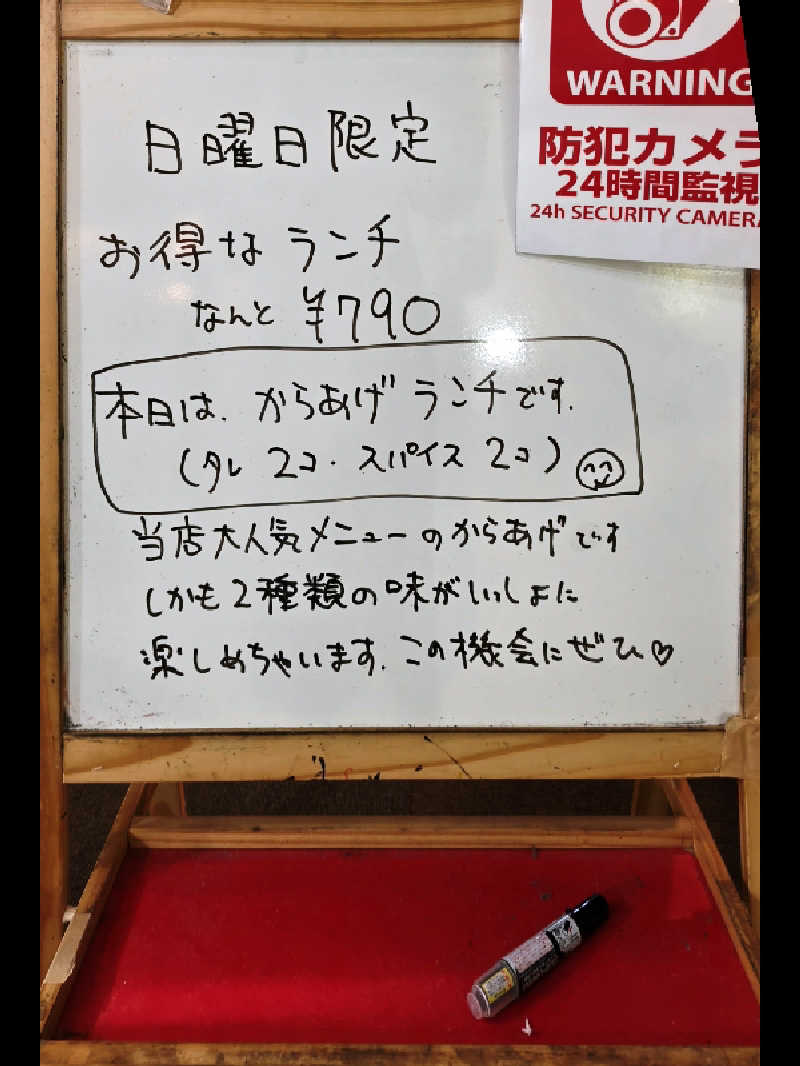 WARNING
防犯カメラ
24時間監視
24h SECURITY CAMERA
日曜日限定
お得なランチ
なんと ¥790
本日は、からあげランチです。
(タレ 2コ・スパイス 2コ)
当店大人気メニューのからあげです
しかも2種類の味がいっしょに
楽しめちゃいます。この機会にぜひ♡